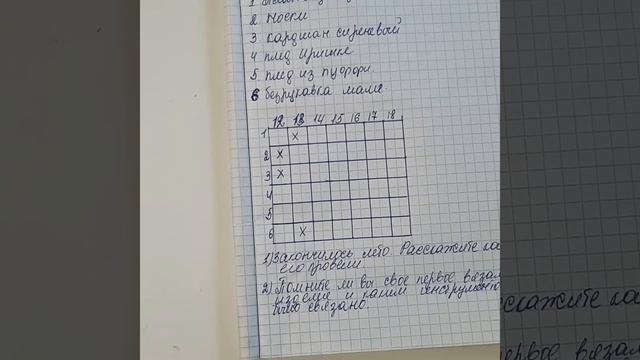 2 Носки
3 кардиган сиреневый
4 плед Иришке
5 плед из пуффи
6 безрукавка маме.
12 13 14 15 16 17 18
1 x
2 x
3 x
4
5
6 x
1) Закончилось лето. Расскажите ка
его провели.
2) Помните ли вы свое первое вязан
изделие и каким инструменто
было связано.
сскажите ка
ервое вязан